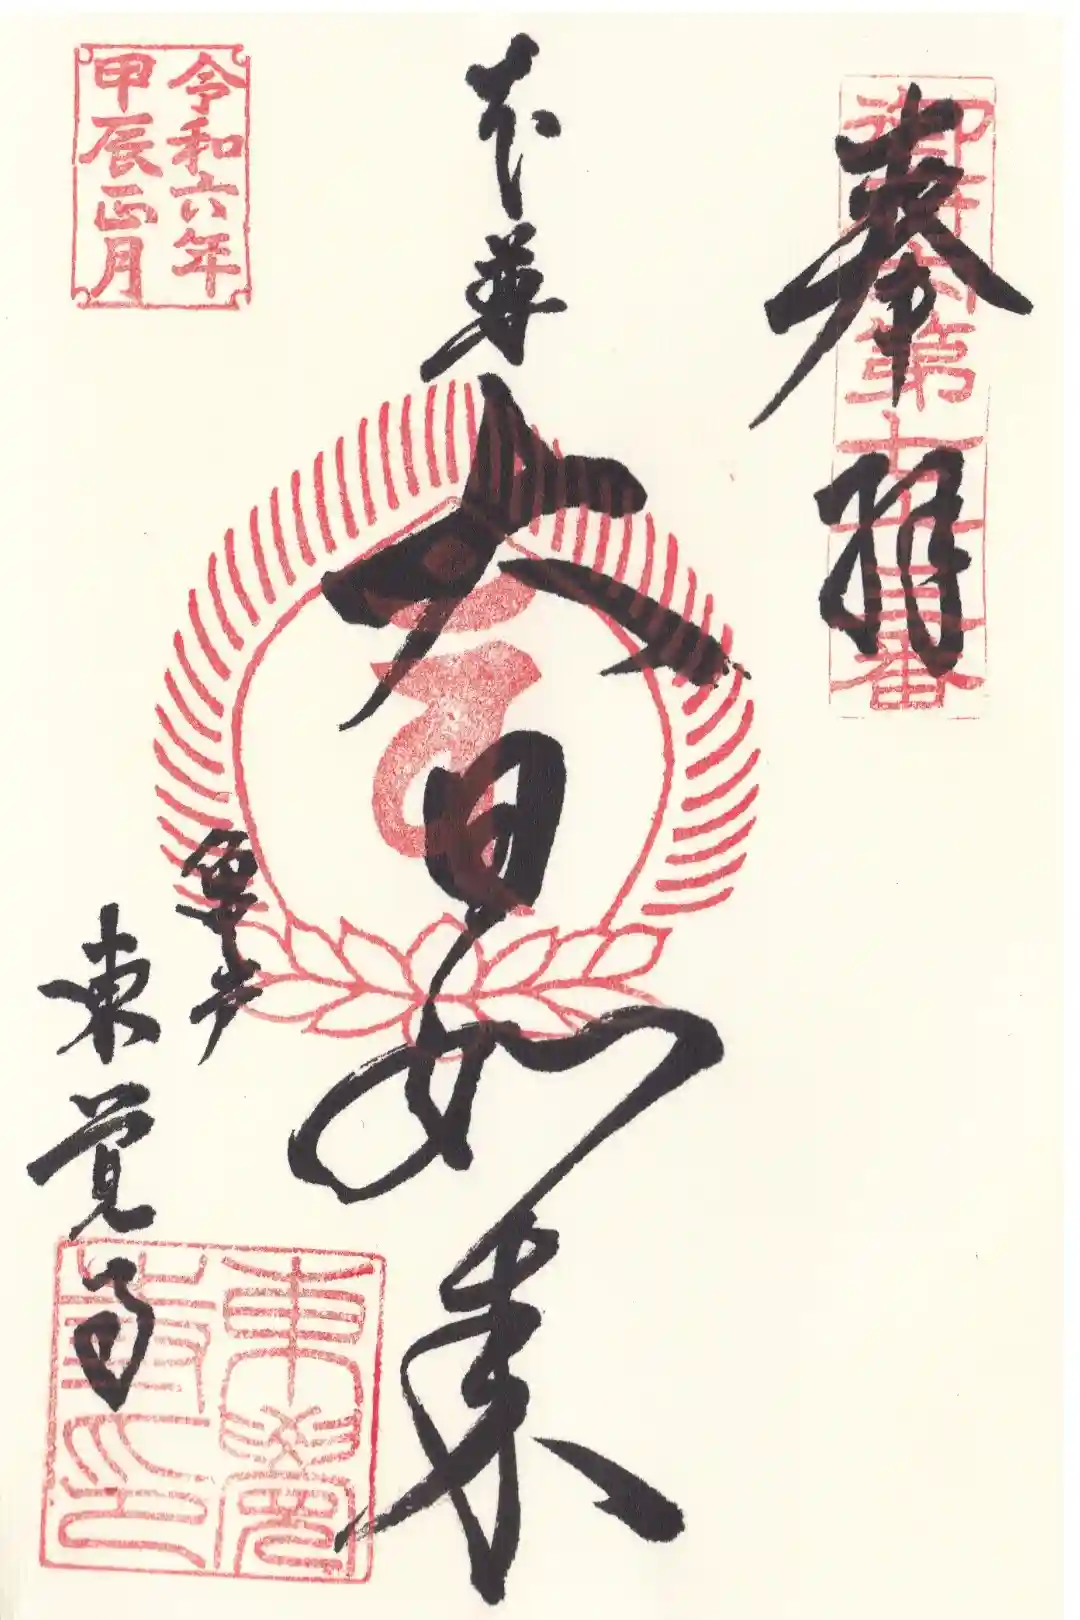 奉拝
御府内第七十三番
本尊
大日如来
亀戸
東覚寺
令和六年
甲辰正月
東覺
寺印